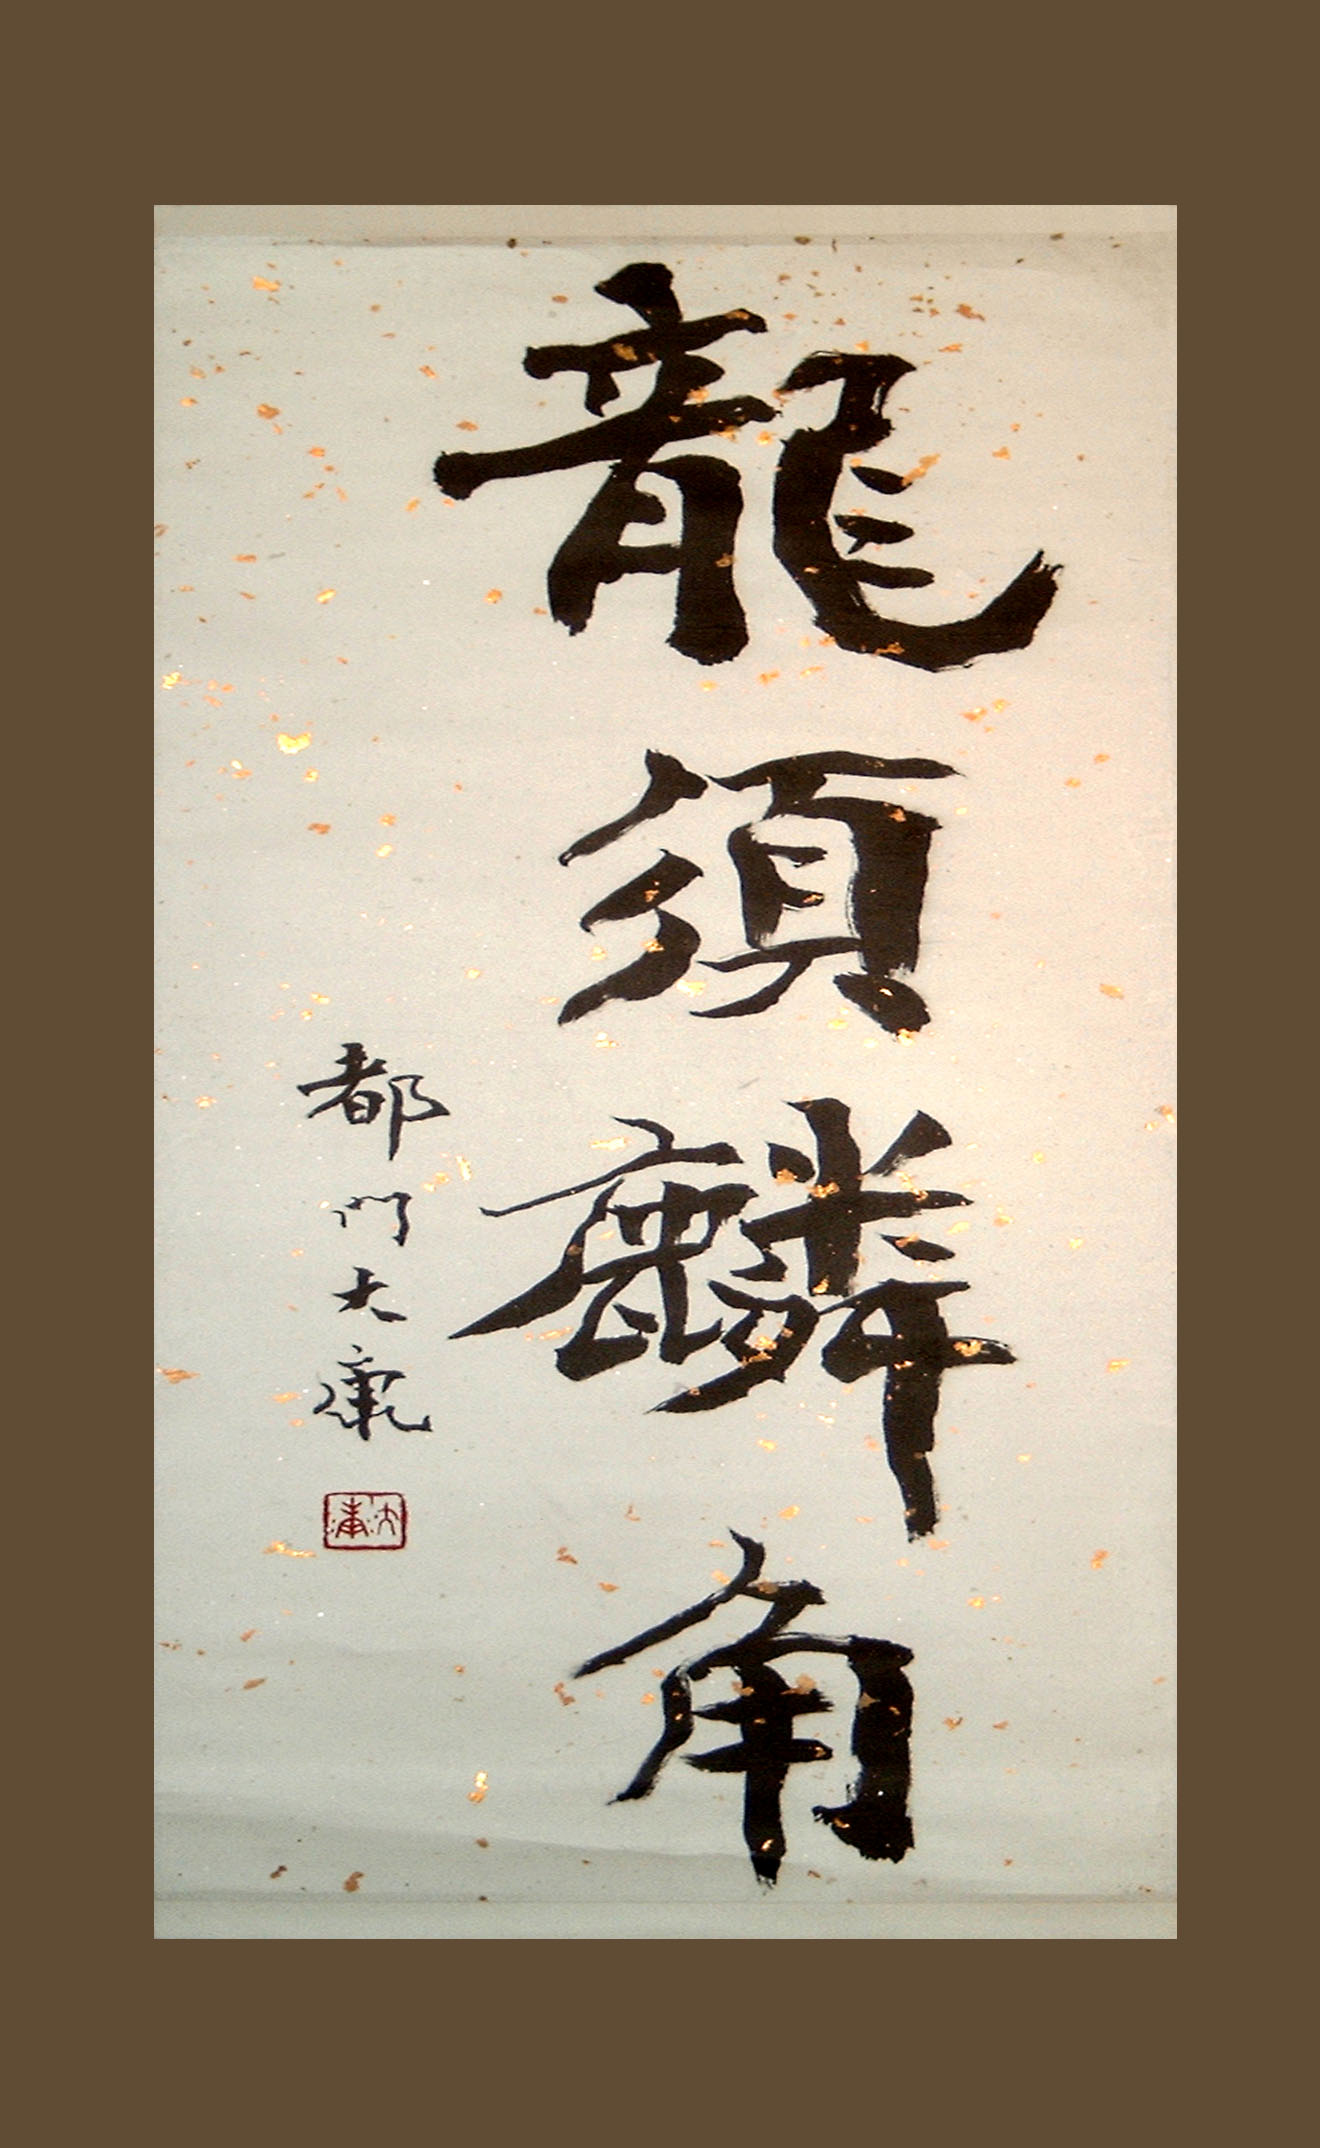 龍須麟角
都門大康
大康